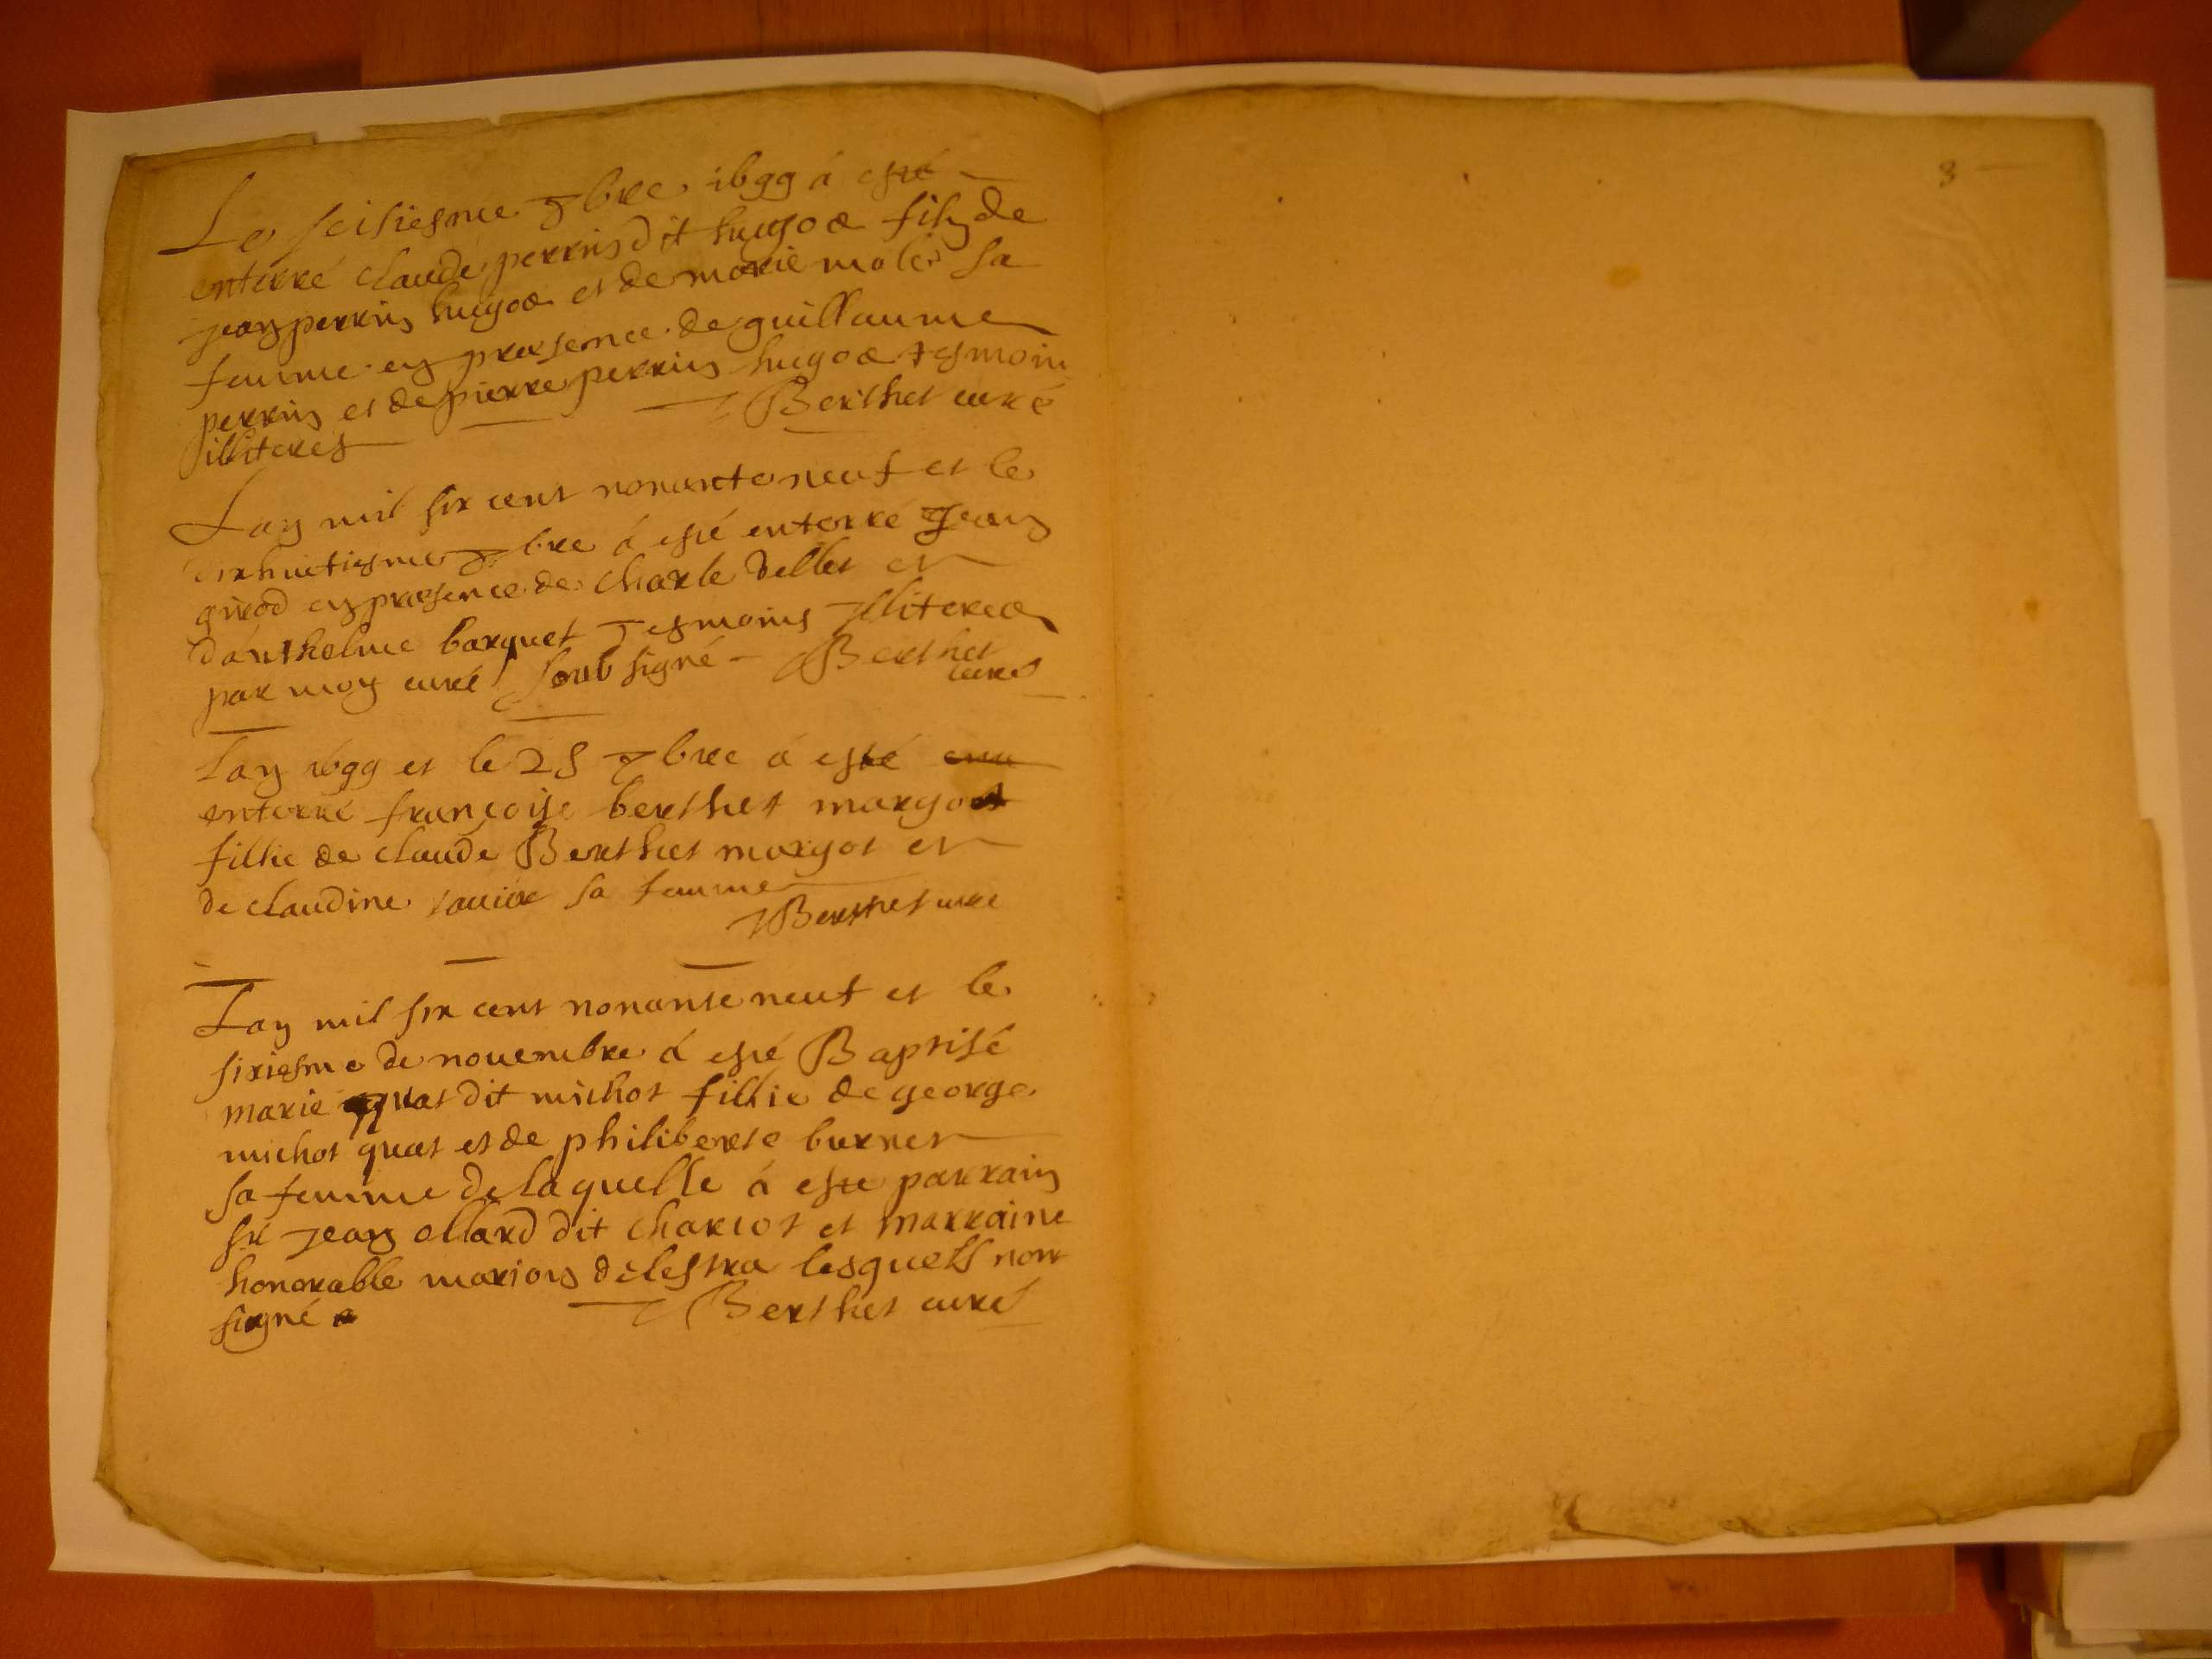 Le seisiesme 7bre 1699 á esté
enterré claude perrin dit hugoz filz de
jean perrin hugoz et de marie molé sa
femme en presence de guillaume
perrin et de pierre perrin hugoz tesmoin
illiterez Berthet curé
Lan mil six cent nonante neuf et le
dixhuictiesme 7bre á esté enterré Jean
girod en presence de charle vellet et
danthelme barquet Tesmoins Illiterez
par moy curé soub signé Berthet
curé
Lan 1699 et le 25 7bre á esté
enterré françoise berthet margot
fillie de claude Berthet margot et
de claudine sa femme
Berthet curé
Lan mil six cent nonante neuf et le
sixiesme de nouembre á esté Baptisé
marie quat dit michot fillie de george
michot quat et de philiberte burnet
sa femme de laquelle á esté parrain
sr jean ollard dit charlot et marraine
honorable marion delestra lesquels nont
signé Berthet curé
3